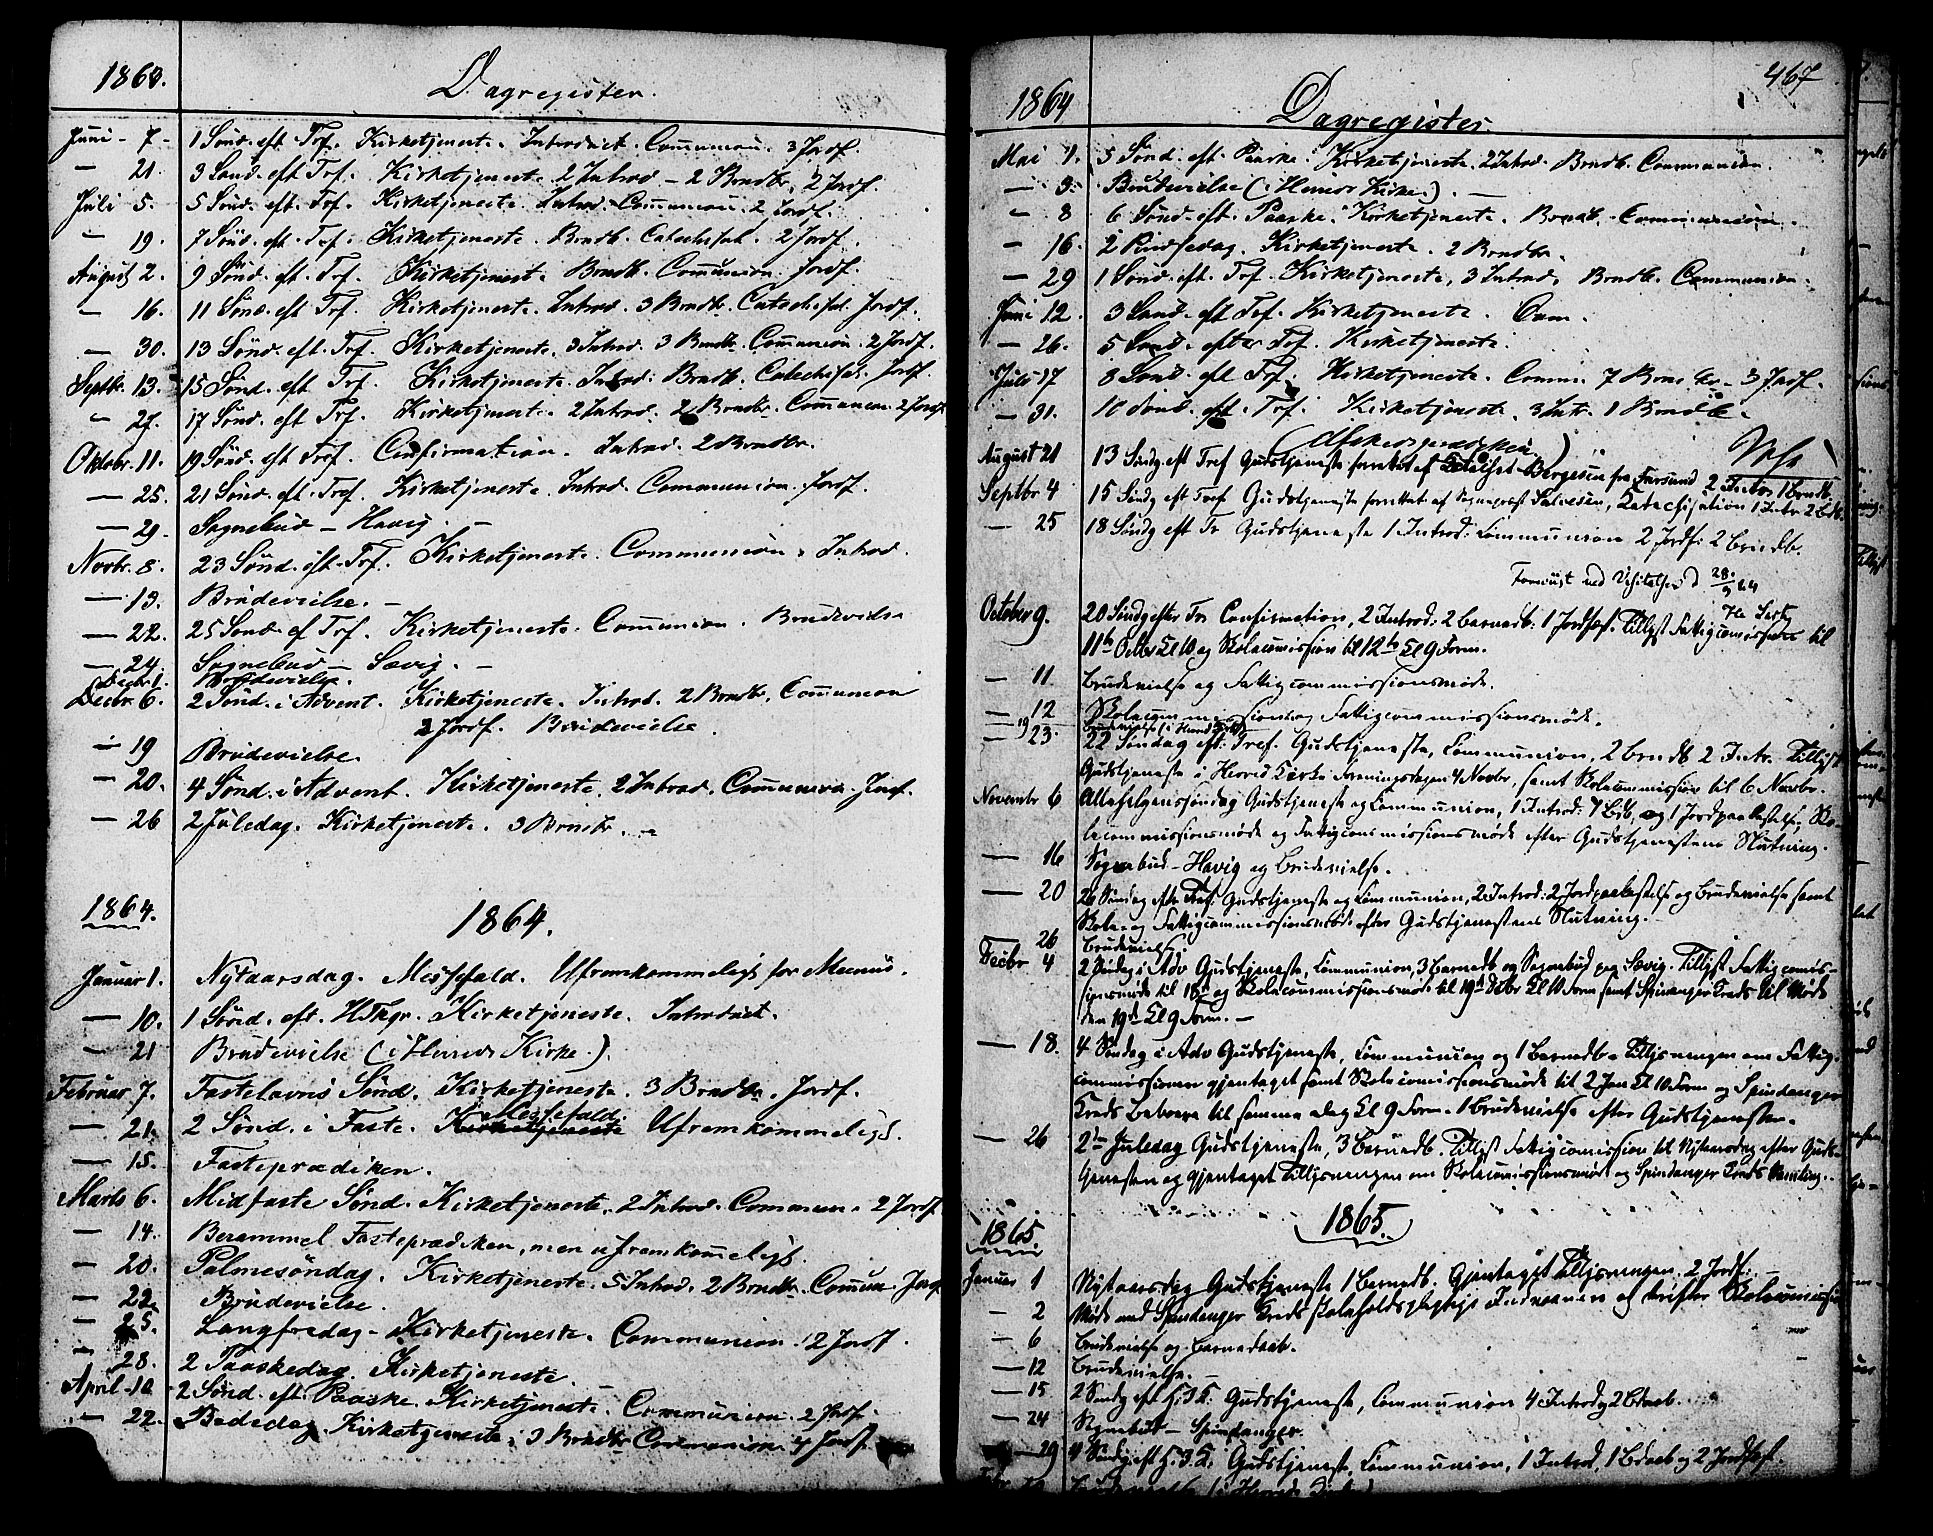 1863. Dagregister.
Juni - 7 - 1 Sönd. eft. Tref. Kirketjeneste. Introduct. Communion. 3 Jordf.
— 21. 3 Sönd. eft Tref. Kirketjeneste 2 Introd - 2 Barndb. 2 Jordf.
Juli 5. 5 Sönd. eft. Tref. Kirketjeneste. Introd. Communion. 2 Jordf.
— 19. 7 Sönd. eft. Tref. Kirketjeneste. Barndb. Catechisat. 2 Jordf.
August 2. 9 Sönd. eft. Tref. Kirketjeneste. Barndb. Communion. Jordf.
— 16. 11 Sönd. eft Tref. Kirketjeneste. Introd. 3 Barndb. Catechisat. Jordf.
— 30. 13 Sönd. eft. Tref. Kirketjeneste. 3 Introd. 3 Barndb. Communion. 2 Jordf.
Septbr. 13. 15 Sönd. eft Tref. Kirketjeneste. Introd. Barndb. Catechisat. Jordf.
— 27. 17 Sönd. eft Tref. Kirketjeneste. 2 Introd. 2 Barndbr. Communion 2 Jordf
Oktobr. 11. 19 Sönd. eft Tref. Confirmation. Introd. 2 Barndbr.
— 25. 21 Sönd. eft. Tref. Kirketjeneste. Introd. Communion. Jordf.
— 29. Sognebud — Havig. —
Novbr. 8. 23 Sönd. eft. Tref. Kirketjeneste. Communion. Introd.
— 13. Brudevielse. —
— 22. 25 Sönd. ef Tref. Kirketjeneste. Communion. Brudevielse
— 24. Sognebud — Sævig. —
Decbr 1. Brudevielse.
Decbr 6. 2 Sönd. i Advent. Kirketjeneste. Introd. 2 Barndbr. Communion
2 Jordf. Brudevielse.
— 19 Brudevielse.
— 20. 4 Sönd. i Advent. Kirketjeneste. 2 Introd. Communion. Jordf.
— 26 2 Juledag. Kirketjeneste. 3 Barndbr. —
1864. 1864.
Januar 1. Nytaarsdag. Messefald. Ufremkommeligt for
— 10. 1 Sönd. eft. H.3Kgr. Kirketjeneste. Introduct.
— 21 Brudevielse (i Herreds Kirke).
Februar 7. Fastelavns Sönd. Kirketjeneste. 3 Barndbr. Jordf.
— 21. 2 Sönd. i Faste. Kirketjeneste Messefald. Ufremkommeligt.
— 15. Fasteprædiken.
Marts 6. Midfaste Sönd. Kirketjeneste. 2 Introd. Commun. 2 Jordf
— 14. Berammet Fasteprædiken, men ufremkommeligt.
— 20. Palmesöndag. Kirketjeneste. 5 Introd. 2 Barndbr. Commun. Jordf
— 22. Brudevielse.
— 25. Langfredag - Kirketjeneste. Communion. 2 Jordf.
— 28. 2 Paaskedag. Kirketjeneste.
April - 10 - 2 Sönd. eft. Paaske. Kirketjeneste. Communion. 2 Jordf.
— 22. Bededag. Kirketjeneste. 3 Barndbr Communion 4 Jordf
467
1864 Dagregister.
Mai 1. 5 Sönd. eft. Paaske. Kirketjeneste. 2 Introd. Barndb. Communion.
— 3. Brudevielse (i Herreds Kirke). —
— 8 6 Sönd. eft. Paaske. Kirketjeneste. Barndb. Communion.
— 16. 2 Pindsedag. Kirketjeneste. 2 Barndbr.
— 29 1 Sönd. eft. Tref. Kirketjeneste, 3 Introd. Barndb. Communion.
Juni 12. 3 Sönd. eft Tref. Kirketjeneste. Com.
— 26. 5 Sönd. efter Tref. Kirketjeneste.
Juli 17 8 Sönd. eft Tref. Kirketjeneste. Commu. 7 — 3 Jordf.
— 31. 10 Sönd. eft. Tref. Kirketjeneste. 3 Intr. 1 Barndb.
(Afskedsprædiken)
August 21 13 Sindg. eft Tref Gudstjeneste forrettet af Bergesen fra Farsund 2 Introd 1 Barndb.
Septbr 4 15 Sindg eft Tref Gudstjeneste forrettet af Sognepræst Salvesen, Katechisation 1 Intr 2 Bdb.
— 25 18 Sindg eft Tr Gudstjeneste 1 Introd: Communion 2 Jordf: 2 Barndb.
Foreviist ved Visitatsen d 28/9 64
October 9. 20 Sindg efter Tr Confirmation, 2 Introd: 2 Barnedb: 1 Jordfæst. Tillyst Fattigcomission til
11te Octbr Kl 10 og Skolecomission til 12te Kl 9 Form.
— 11. Brudevielse og Fattigcommissionsmöde.
— 12 Skolecommissions og Fattigcommissionsmöde.
— 19 Brudevielse (i Herred Kirke)
— 23. 22 Söndag eft: Tref. Gudstjeneste, Communion, 2 Barndb 2 Intr. Tillyst
Gudstjeneste i Herred Kirke Foreningsdagen 4 Novbr. samt Skolecommission til 6 Novbr.
Novembr 6 Allehelgenssöndag Gudstjeneste og Communion, 1 Introd: 4 Bdb, og 1 Jordpaakastelse, Sko-
lecommissionsmöde og Fattigcommissionsmöde efter Gudstjenestens Slutning.
— 16 Sognebud - Havig og Brudevielse.
— 20 26 Söndag efter Tref: Gudstjeneste og Communion, 2 Introd: 2 Jordpaakastelse og Brudevielse samt
Skole- og Fattigcommissionsmöde efter Gudstjenestens Slutning.
— 26 Brudevielse.
Decbr 4 2 Söndag i Adv Gudstjeneste, Communion, 3 Barnedb og Sognebud paa Sævig. Tillyst Fattigcomis-
sionsmöde til 18de og Skolecommissionsmöde til 19de Decbr Kl 10 Form samt Spindanger Kreds til Möde
den 19de Kl 9 Form. —
— 18. 4 Söndag i Adv Gudstjeneste, Communion og 1 Barnedb. Tillysningen om Fattig-
commissionen gjentaget samt Skolecomissionsmöde til 2 Jan Kl 10 Form og Spindanger
Kreds Beboere til samme Dag Kl 9 Form. 1 Brudevielse efter Gudstjenesten.
— 26 2den Juledag Gudstjeneste, 3 Barnedb. Tillyst Fattigcomission til Nytaarsdag efter Guds-
tjenesten og gjentaget Tillysningen om Skolecomissionsmöde og Spindanger Kreds Samling.
1865. 1865.
Januar 1 Nytaarsdag Gudstjeneste 1 Barnedb. Gjentaget Tillysningen. 2 Jordf: —
— 2 Möde med Spindanger Kreds skoleholdspligtige Indvaanere og derefter Skolecomission
— 6 Brudevielse og Barnedaab.
— 12 Brudevielse. —
— 15 2 Sindg eft H. 3 K. Gudstjeneste, Communion 4 Introd og 2 Bdaab.
— 24 Sognebud — Spindanger.
— 29 4 Sindg. eft H. 3 K. Gudstjeneste, Communion, 1 Introd, 1 Bdaab og 2 Jordfæst.